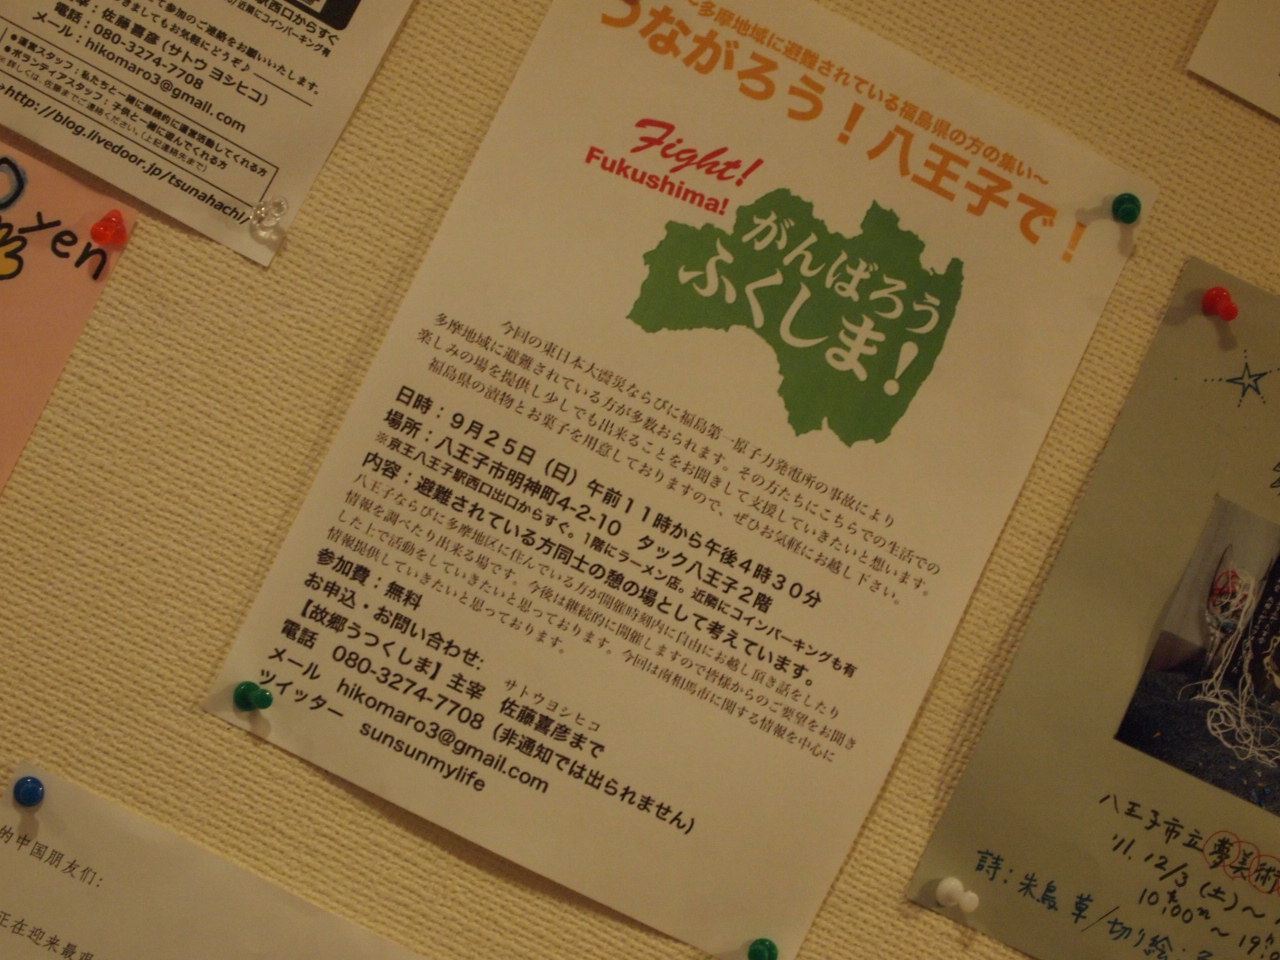 駅西口からすぐ
近隣にコインパーキング有
て参加のご連絡をお願いいたします。
きましてもお気軽にどうぞ♪
佐藤喜彦（サトウ ヨシヒコ）
電話：080-3274-7708
メール：hikomaro3@gmail.com
●運営スタッフ：私たちと一緒に継続的に運営活動してくれる方
●ボランティアスタッフ：子供と一緒に遊んでくれる方
詳しくは、佐藤までご連絡ください。（上記連絡先まで）
http://blog.livedoor.jp/tsunahachi/
yen
～多摩地域に避難されている福島県の方の集い～
つながろう！八王子で！
Fight!
Fukushima!
がんばろう
ふくしま！
今回の東日本大震災ならびに福島第一原子力発電所の事故により
多摩地域に避難されている方が多数おられます。その方たちにこちらでの生活での
楽しみの場を提供し少しでも出来ることをお聞きして支援していきたいと想います。
福島県の漬物とお菓子を用意しておりますので、ぜひお気軽にお越し下さい。
日時：９月２５日（日）午前１１時から午後４時３０分
場所：八王子市明神町4-2-10　タック八王子２階
※京王八王子駅西口出口からすぐ。1階にラーメン店。近隣にコインパーキングも有
内容：避難されている方同士の憩の場として考えています。
八王子ならびに多摩地区に住んでいる方が開催時刻内に自由にお越し頂き話をしたり
情報を調べたり出来る場です。今後は継続的に開催しますので皆様からのご要望をお聞き
した上で活動をしていきたいと思っております。今回は南相馬市に関する情報を中心に
情報提供していきたいと思っております。
参加費：無料
お申込・お問い合わせ:
サトウヨシヒコ
【故郷うつくしま】主宰　佐藤喜彦まで
電話　080-3274-7708（非通知では出られません）
メール　hikomaro3@gmail.com
ツイッター　sunsunmylife
的中国朋友们：
正在迎来最艰
八王子市立夢美術
'11. 12/3（土）～
10:00～19
詩：朱鳥 草／切り絵：